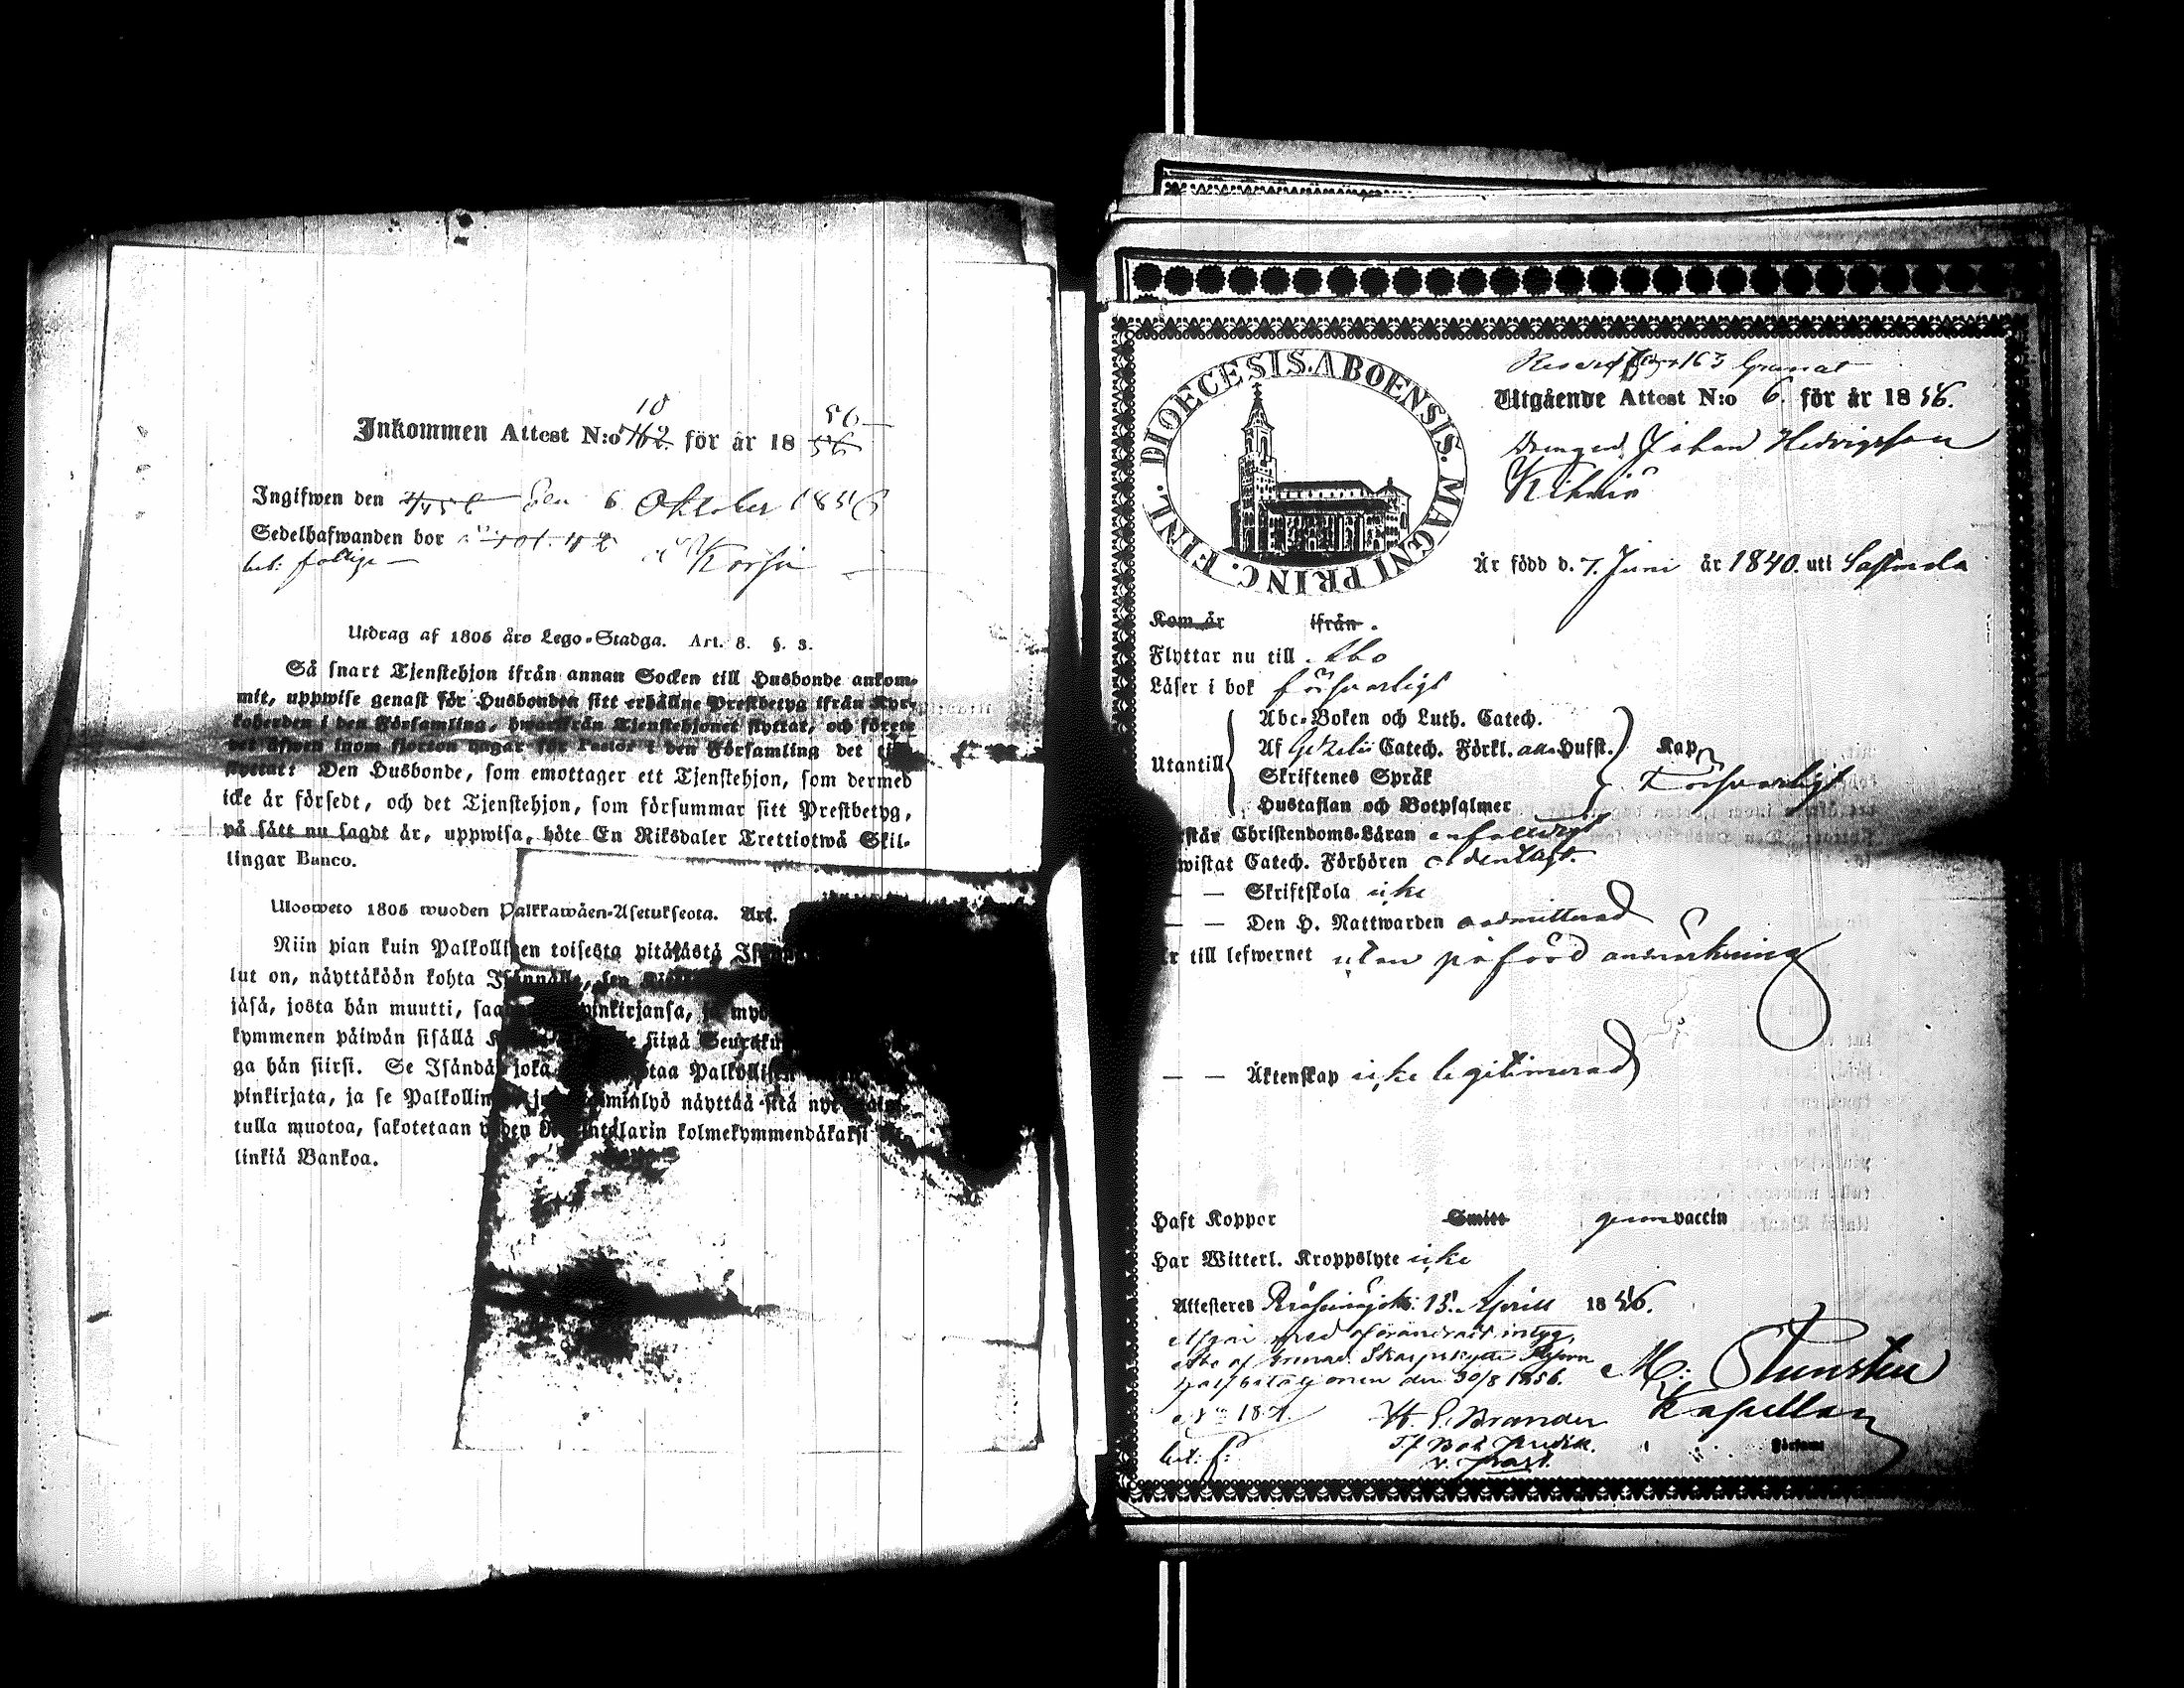 10 56
Inkommen Attest N:o 162. för år 18 56
Ingifwen den Den 6 Oktober 1856
Sedelhafwanden bor å Korsi
Utdrag af 1805 års Lego-Stadga. Art. 8. §. 3.
Så snart Tjenstehjon ifrån annan Socken till Husbonde ankom-
mit, uppwise genast för Husbonden sitt erhållne Prestbetyg ifrån Kyr-
koherden i den Församling, hwarifrån Tjenstehjonet flyttat, och förete
det äfwen inom fjorton dagar för Pastor i den Församling det
flyttat: Den Husbonde, som emottager ett Tjenstehjon, som dermed
icke är försedt, och det Tjenstehjon, som försummar sitt Prestbetyg,
på sätt nu sagdt är, uppwisa, böte En Riksdaler Trettiotwå Skil-
lingar Banco.
Ulosweto 1805 wuoden Palkkawäen-Asetuksesta. Art.
Niin pian kuin Palkollinen toisesta pitäjästä
lut on, näyttäköön kohta Isännälle,
jäsä, josta hän muutti, pinkirjansa,
kymmenen päiwän sisällä siinä Seuraku
ga hän siirsi. Se Isändä, joka Palkollisen
pinkirjata, ja se Palkollinen, näyttää sitä
tulla muotoa, sakotetaan yhden kolmekymmendäkaksi
linkiä Bankoa.
DIOECESIS. ABOENSIS. MAGNI PRINC. FINL.
Utgående Attest N:o 6. för år 1856.
Drengen Johan Hedvigsson
Kihniö
Är född d. 7. Juni år 1840. uti Sastmola
Kom år ifrån.
Flyttar nu till Åbo
Läser i bok försvarligt
Abc-Boken och Luth. Catech.
Utantill Af Gezelii Catech. Förkl. Hufst. Kap
Skriftenes Språk försvarligt
Hustaflan och Botpsalmer
står Christendoms-Läran enfaldigt
wistat Catech. Förhören ordentligt.
— — Skriftskola icke
— — Den H. Nattwarden oadmitterad
Är till lefwernet utan påförd anmärkning
— — Äktenskap icke legitimerad
Haft Koppor Smitt genom vaccin
Har Witterl. Kroppslyte icke
Attesteres 15. April 1856.
Afgår med oförändradt intyg,
Åbo af Grenad. Skarpskytte
Bataljonen den 30/8 1856.
M:
Kapellan
Brander
v. Past.
Församl